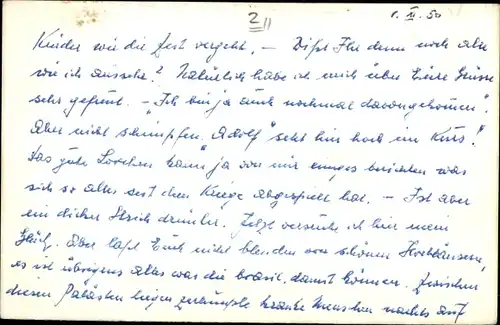 2
1. XI. 50
Kinder wie die Zeit vergeht. – Wißt Ihr denn noch alle
wie ich aussehe? Natürlich habe ich mich über Eure Grüsse
sehr gefreut. – "Ich bin ja auch nochmal davongekommen".
Aber nicht schimpfen "Adolf" steht hier hoch im Kurs!
Das gute Lorchen kann ja von mir einiges berichten was
sich so alles seit dem Kriege abgespielt hat. – Ist aber
ein dicker Strich drunter. Jetzt versuche ich hier mein
Glück. Aber lasst Euch nicht blenden von schönen Hochhäusern,
es ist übrigens alles was die brasil. damit können. Zwischen
diesen Palästen liegen zerlumpte kranke Menschen nachts auf